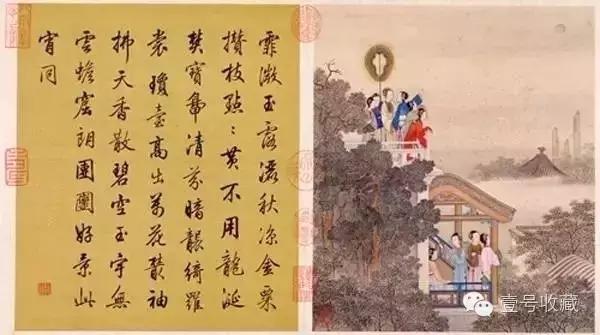 霏微玉露秋凉金粟
攢枝點〻黃不用龍涎
焚寶鼎清芬暗襲綺羅
裳瓊臺高出萬花叢袖
拂天香散碧空玉宇無
雲蟾窟朗團團好景此
宵同
壹号收藏